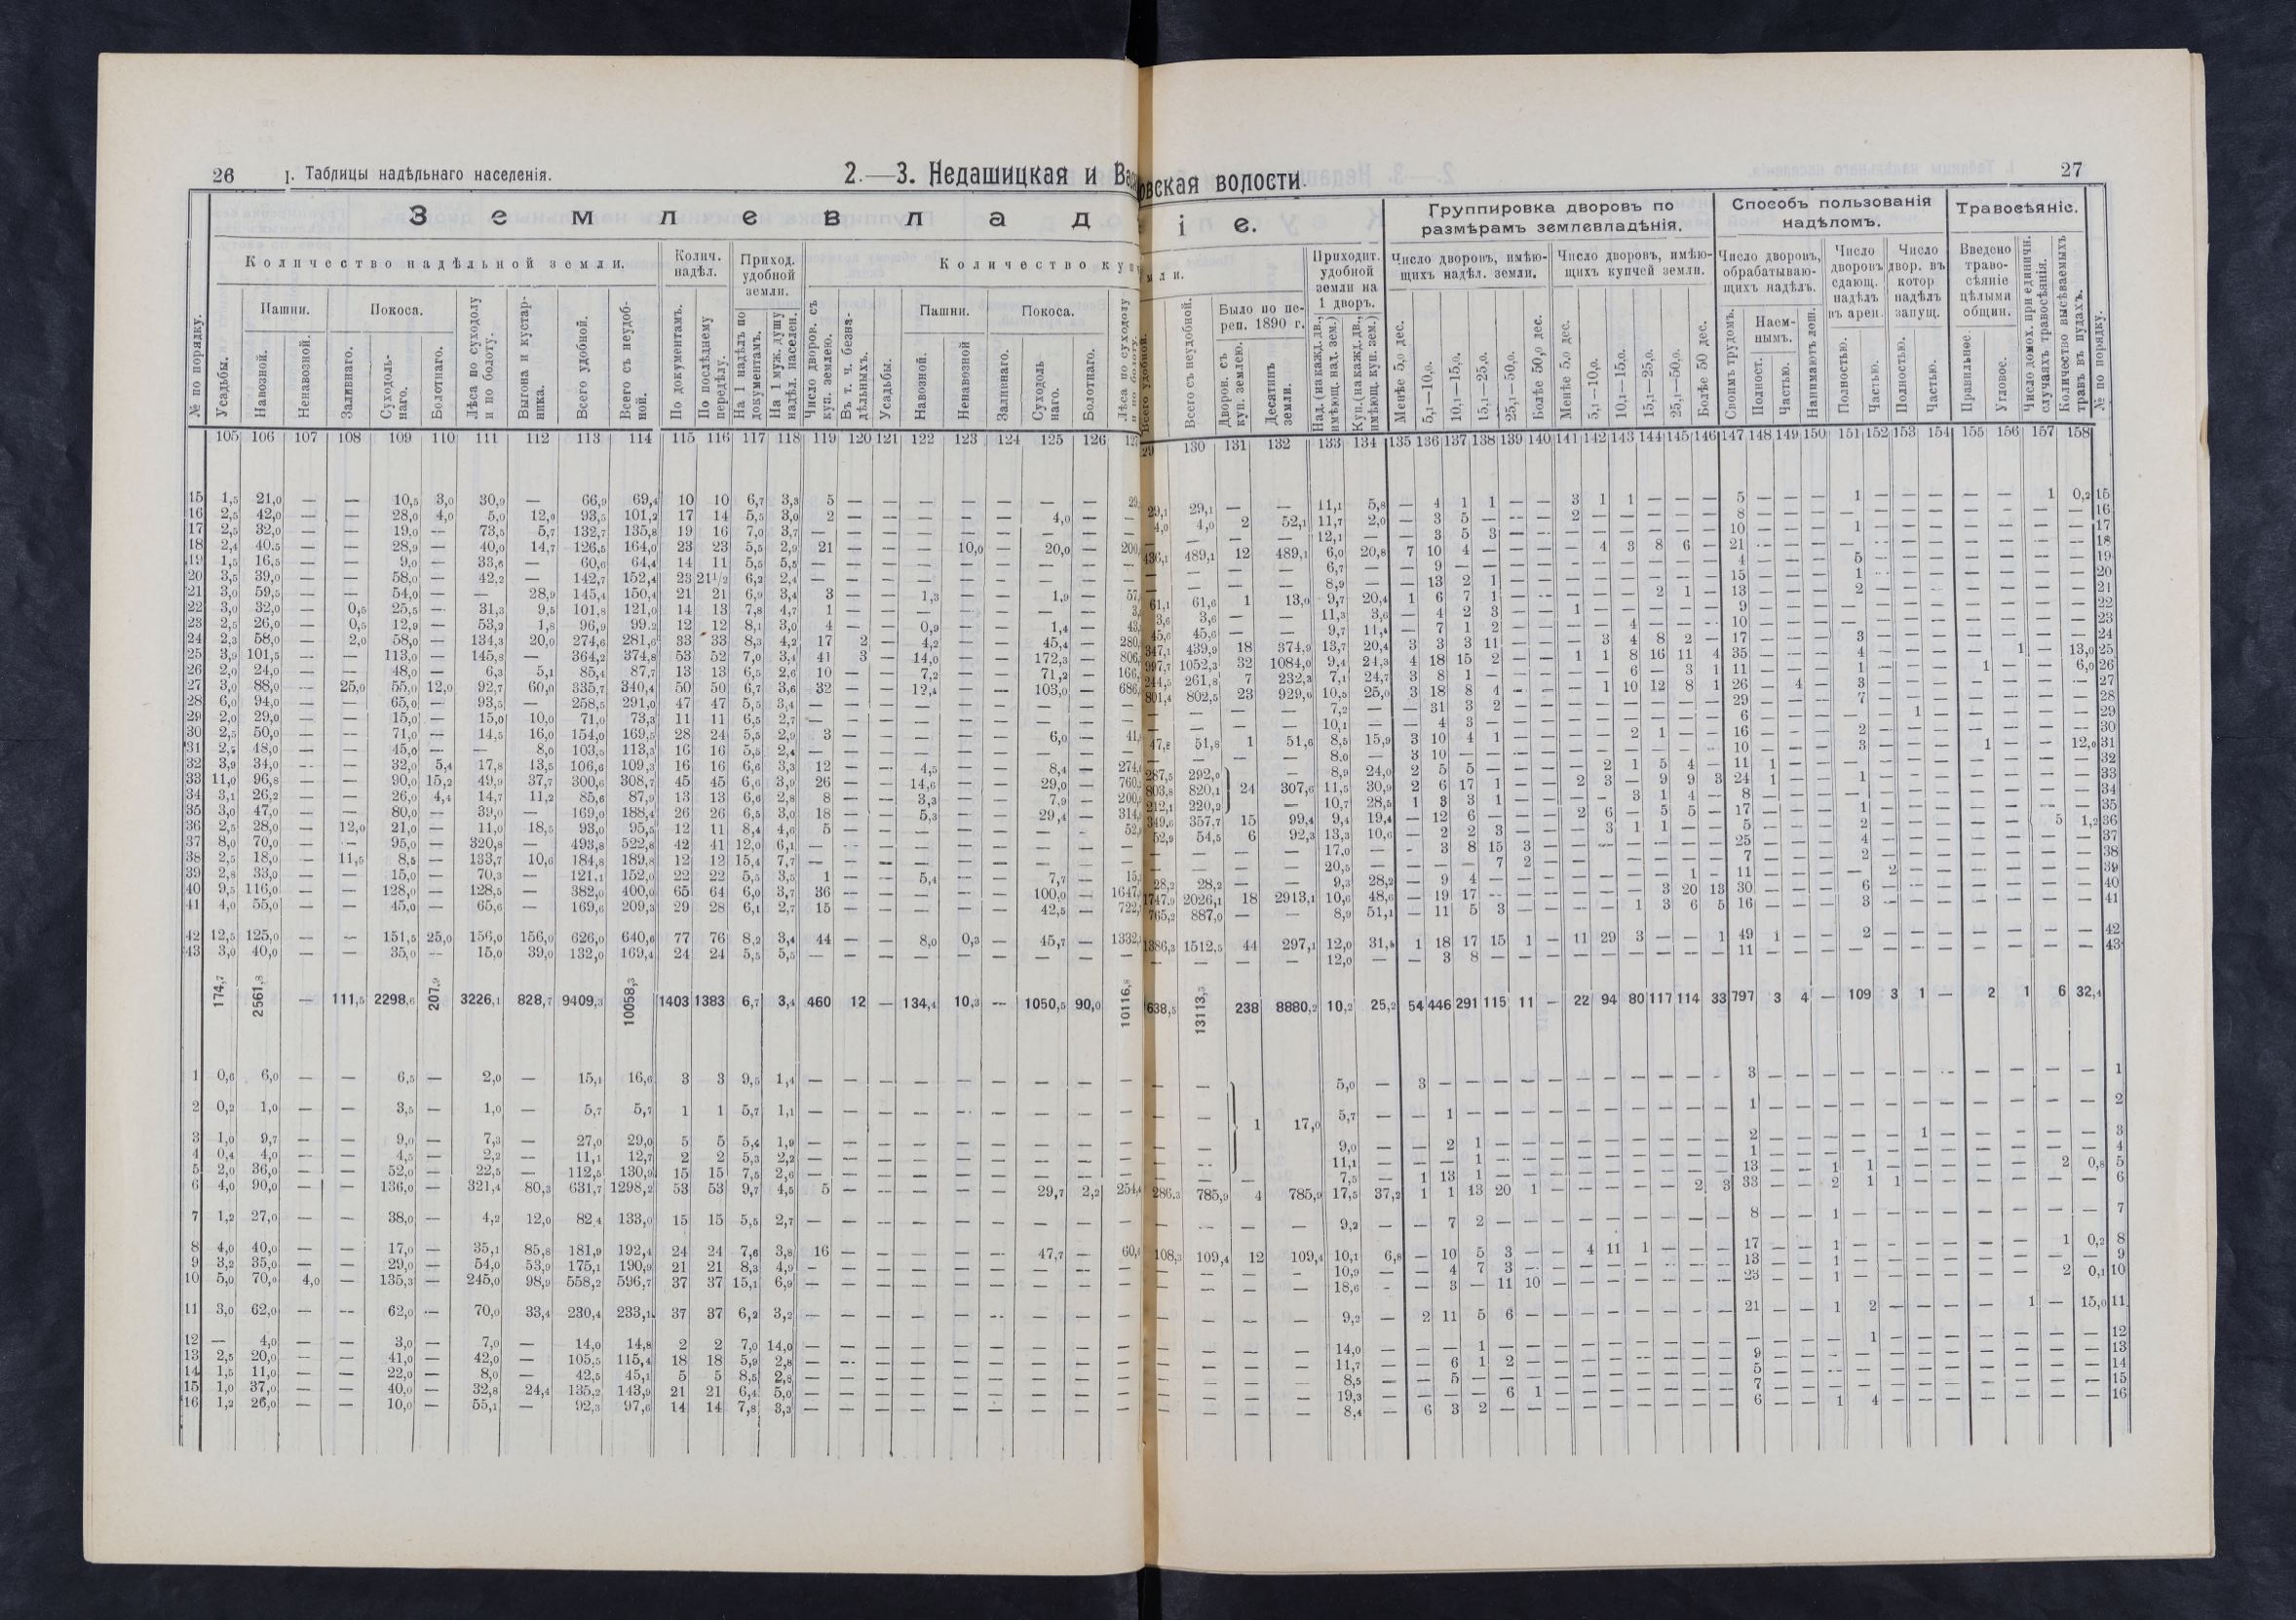 26
I. Таблицы надѣльнаго населенія.
2.—3. Недашицкая и Ва
овская волости.
27
Землевлад
іе.
Группировка дворовъ по размѣрамъ землевладѣнія.
Способъ пользованія надѣломъ.
Травосѣяніе.
Количество надѣльной земли.
Колич. надѣл.
Приход. удобной земли.
Количество куп
мли.
Приходит. удобной земли на 1 дворъ.
Число дворовъ, имѣющихъ надѣл. земли.
Число дворовъ, имѣющихъ купчей земли.
Число дворовъ, обрабатывающихъ надѣлъ.
Число дворовъ сдающ. надѣлъ въ арен.
Число двор. въ котор надѣлъ запущ.
Введено травосѣяніе цѣлыми общин.
Число домох. при единичн. случаяхъ травосѣянія.
Количество высѣваемыхъ травъ въ пудахъ.
№ по порядку.
№ по порядку.
Усадьбы.
Пашни.
Навозной.
Ненавозной.
Покоса.
Заливнаго.
Суходольнаго.
Болотнаго.
Лѣса по суходолу и по болоту.
Выгона и кустарника.
Всего удобной.
Всего съ неудобной.
По документамъ.
По послѣднему передѣлу.
На 1 надѣлъ по документамъ.
На 1 муж. душу надѣл. населен.
Число дворов. съ куп. землею.
Въ т. ч. безнадѣльныхъ.
Усадьбы.
Пашни.
Навозной.
Ненавозной
Покоса.
Заливнаго.
Суходольнаго.
Болотнаго.
Лѣса по суходолу
Всего удобной.
Всего съ неудобной.
Было по переп. 1890 г.
Дворов. съ куп. землею.
Десятинъ земли.
Над. (на кажд. дв., имѣющ. над. зем.)
Куп. (на кажд. дв., имѣющ. куп. зем.)
Менѣе 5,0 дес.
5,1—10,0.
10,1—15,0.
15,1—25,0.
25,1—50,0.
Болѣе 50,0 дес.
Менѣе 5,0 дес.
5,1—10,0.
10,1—15,0.
15,1—25,0.
25,1—50,0.
Болѣе 50 дес.
Своимъ трудомъ.
Наемнымъ.
Полност.
Частью.
Нанимаютъ лош.
Полностью.
Частью.
Полностью.
Частью.
Правильное.
Угловое.
105 106 107 108 109 110 111 112 113 114 115 116 117 118 119 120 121 122 123 124 125 126
130 131 132 133 134 135 136 137 138 139 140 141 142 143 144 145 146 147 148 149 150 151 152 153 154 155 156 157 158
15 1,5 21,0 — — 10,5 3,0 30,9 — 66,9 69,4 10 10 6,7 3,3 5 — — — — — — —
16 2,5 42,0 — — 28,0 4,0 5,0 12,0 93,5 101,2 17 14 5,5 3,0 2 — — — — — 4,0 — —
17 2,5 32,0 — — 19,0 — 73,5 5,7 132,7 135,8 19 16 7,0 3,7 — — — — — — — — —
18 2,4 40,5 — — 28,9 — 40,0 14,7 126,5 164,0 23 23 5,5 2,9 21 — — — 10,0 — 20,0 —
19 1,5 16,5 — — 9,0 — 33,6 — 60,6 64,4 14 11 5,5 5,5 — — — — — — — — —
20 3,5 39,0 — — 58,0 — 42,2 — 142,7 152,4 23 21 1/2 6,2 2,4 — — — — — — — — —
21 3,0 59,5 — — 54,0 — — 28,9 145,4 150,4 21 21 6,9 3,4 3 — — 1,3 — — 1,9 —
22 3,0 32,0 — 0,5 25,5 — 31,3 9,5 101,8 121,0 14 13 7,8 4,7 1 — — — — — — —
23 2,5 26,0 — 0,5 12,9 — 53,2 1,8 96,9 99,2 12 12 8,1 3,0 4 — — 0,9 — — 1,4 —
24 2,3 58,0 — 2,0 58,0 — 134,3 20,0 274,6 281,6 33 33 8,3 4,2 17 2 — 4,2 — — 45,4 —
25 3,9 101,5 — — 113,0 — 145,8 — 364,2 374,8 53 52 7,0 3,4 41 3 — 14,0 — — 172,3 —
26 2,0 24,0 — — 48,0 — 6,3 5,1 85,4 87,7 13 13 6,5 2,6 10 — — 7,2 — — 71,2 —
27 3,0 88,0 — 25,0 55,0 12,0 92,7 60,0 335,7 340,4 50 50 6,7 3,6 32 — — 12,4 — — 103,0 —
28 6,0 94,0 — — 65,0 — 93,5 — 258,5 291,0 47 47 5,5 3,4 — — — — — — — — —
29 2,0 29,0 — — 15,0 — 15,0 10,0 71,0 73,3 11 11 6,5 2,7 — — — — — — — — —
30 2,5 50,0 — — 71,0 — 14,5 16,0 154,0 169,5 28 24 5,5 2,9 3 — — — — — 6,0 —
31 48,0 — — 45,0 — — 8,0 103,5 113,3 16 16 5,5 2,4 — — — — — — — — —
32 3,9 34,0 — — 32,0 5,4 17,8 13,5 106,6 109,3 16 16 6,6 3,3 12 — — 4,5 — — 8,4 —
33 11,0 96,8 — — 90,0 15,2 49,9 37,7 300,6 308,7 45 45 6,6 3,9 26 — — 14,6 — — 29,0 —
34 3,1 26,2 — — 26,0 4,4 14,7 11,2 85,6 87,9 13 13 6,6 2,8 8 — — 3,3 — — 7,9 —
35 3,0 47,0 — — 80,0 — 39,0 — 169,0 188,4 26 26 6,5 3,0 18 — — 5,3 — — 29,4 —
36 2,5 28,0 — 12,0 21,0 — 11,0 18,5 93,0 95,5 12 11 8,4 4,6 5 — — — — — — —
37 8,0 70,0 — — 95,0 — 320,8 — 493,8 522,8 42 41 12,0 6,1 — — — — — — — — —
38 2,5 18,0 — 11,5 8,5 — 133,7 10,6 184,8 189,8 12 12 15,4 7,7 — — — — — — — — —
39 2,8 33,0 — — 15,0 — 70,3 — 121,1 152,0 22 22 5,5 3,5 1 — — 5,4 — — 7,7 —
40 9,5 116,0 — — 128,0 — 128,5 — 382,0 400,0 65 64 6,0 3,7 36 — — — — — 100,0 —
41 4,0 55,0 — — 45,0 — 65,6 — 169,6 209,3 29 28 6,1 2,7 15 — — — — — 42,5 —
42 12,5 125,0 — — 151,5 25,0 156,0 156,0 626,0 640,6 77 76 8,2 3,4 44 — — 8,0 0,3 — 45,7 —
43 3,0 40,0 — — 35,0 — 15,0 39,0 132,0 169,4 24 24 5,5 5,5 — — — — — — — — —
174,7 2561,8 — 111,5 2298,6 207,9 3226,1 828,7 9409,3 10058,3 1403 1383 6,7 3,4 460 12 — 134,4 10,3 — 1050,5 90,0 10116,8
1 0,6 6,0 — — 6,5 — 2,0 — 15,1 16,6 3 3 9,5 1,4 — — — — — — — — —
2 0,2 1,0 — — 3,5 — 1,0 — 5,7 5,7 1 1 5,7 1,1 — — — — — — — — —
3 1,0 9,7 — — 9,0 — 7,3 — 27,0 29,0 5 5 5,4 1,9 — — — — — — — — —
4 0,4 4,0 — — 4,5 — 2,2 — 11,1 12,7 2 2 5,3 2,2 — — — — — — — — —
5 2,0 36,0 — — 52,0 — 22,5 — 112,5 130,9 15 15 7,5 2,6 — — — — — — — — —
6 4,0 90,0 — — 136,0 — 321,4 80,3 631,7 1298,2 53 53 9,7 4,5 5 — — — — — 29,7 2,2
7 1,2 27,0 — — 38,0 — 4,2 12,0 82,4 133,0 15 15 5,5 2,7 — — — — — — — — —
8 4,0 40,0 — — 17,0 — 35,1 85,8 181,9 192,4 24 24 7,6 3,8 16 — — — — — 47,7 —
9 3,2 35,0 — — 29,0 — 54,0 53,9 175,1 190,9 21 21 8,3 4,9 — — — — — — — — —
10 5,0 70,0 4,0 — 135,3 — 245,0 98,9 558,2 596,7 37 37 15,1 6,9 — — — — — — — — —
11 3,0 62,0 — — 62,0 — 70,0 33,4 230,4 233,1 37 37 6,2 3,2 — — — — — — — — —
12 — 4,0 — — 3,0 — 7,0 — 14,0 14,8 2 2 7,0 14,0 — — — — — — — — —
13 2,5 20,0 — — 41,0 — 42,0 — 105,5 115,4 18 18 5,9 2,8 — — — — — — — — —
14 1,5 11,0 — — 22,0 — 8,0 — 42,5 45,1 5 5 8,5 2,8 — — — — — — — — —
15 1,0 37,0 — — 40,0 — 32,8 24,4 135,2 143,9 21 21 6,4 5,0 — — — — — — — — —
16 1,2 26,0 — — 10,0 — 55,1 — 92,3 97,6 14 14 7,8 3,3 — — — — — — — — —
29,1 29,1 — — 11,1 5,8 — 4 1 1 — — 3 1 1 — — — 5 — — — 1 — — — — — 1 0,2 15
4,0 4,0 2 52,1 11,7 2,0 — 3 5 — — — 2 — — — — — 8 — — — — — — — — — — — 16
— — — — 12,1 — — 3 5 3 — — — — — — — — 10 — — — 1 — — — — — — — 17
436,1 489,1 12 489,1 6,0 20,8 7 10 4 — — — — 4 3 8 6 — 21 — — — — — — — — — — — 18
— — — — 6,7 — — 9 — — — — — — — — — — 4 — — — 5 — — — — — — — 19
— — — — 8,9 — — 13 2 1 — — — — — — — — 15 — — — 1 — — — — — — — 20
61,1 61,6 1 13,0 9,7 20,4 1 6 7 1 — — — — — 2 1 — 13 — — — 2 — — — — — — — 21
3,6 3,6 — — 11,3 3,6 — 4 2 3 — — 1 — — — — — 9 — — — — — — — — — — — 22
45,6 45,6 — — 9,7 11,4 — 7 1 2 — — — — 4 — — — 10 — — — — — — — — — — — 23
347,1 439,9 18 374,9 13,7 20,4 3 3 3 11 — — — 3 4 8 2 — 17 — — — 3 — — — — — — — 24
997,7 1052,3 32 1084,0 9,4 24,3 4 18 15 2 — — 1 1 8 16 11 4 35 — — — 4 — — — — 1 — 13,0 25
244,5 261,8 7 232,3 7,1 24,7 3 8 1 — — — — — 6 — 3 1 11 — — — 1 — — — 1 — — 6,0 26
801,4 802,5 23 929,6 10,5 25,0 3 18 8 4 — — — 1 10 12 8 1 26 — 4 — 3 — — — — — — — 27
— — — — 7,2 — — 31 3 2 — — — — — — — — 29 — — — 7 — — — — — — — 28
— — — — 10,1 — — 4 3 — — — — — — — — — 6 — — — — — 1 — — — — — 29
47,8 51,8 1 51,6 8,5 15,9 3 10 4 1 — — — — 2 1 — — 16 — — — 2 — — — — — — — 30
— — — — 8,0 — 3 10 — — — — — — — — — — 10 — — — 3 — — — 1 — — 12,0 31
287,5 292,0 — 8,9 24,0 2 5 5 — — — — 2 1 5 4 — 11 1 — — — — — — — — — — 32
803,8 820,1 24 307,6 11,5 30,9 2 6 17 1 — — 2 3 — 9 9 3 24 1 — — 1 — — — — — — — 33
212,1 220,2 — 10,7 28,5 1 3 3 1 — — — — 3 1 4 — 8 — — — — — — — — — — — 34
349,6 357,7 15 99,4 9,4 19,4 — 12 6 — — — 2 6 — 5 5 — 17 — — — 1 — — — — — — — 35
52,9 54,5 6 92,3 13,3 10,6 — 2 2 3 — — — 3 1 1 — — 5 — — — 2 — — — — — 5 1,2 36
— — — — 17,0 — — 3 8 15 3 — — — — — — — 25 — — — 4 — — — — — — — 37
— — — — 20,5 — — — — 7 2 — — — — — — — 7 — — — 2 — — — — — — — 38
28,2 28,2 — — 9,3 28,2 — 9 4 — — — — — — — 1 — 11 — — — — 2 — — — — — — 39
1747,9 2026,1 18 2913,1 10,6 48,6 — 19 17 — — — — — — 3 20 13 30 — — — 6 — — — — — — — 40
765,2 887,0 — — 8,9 51,1 — 11 5 3 — — — — 1 3 6 5 16 — — — 3 — — — — — — — 41
1386,3 1512,5 44 297,1 12,0 31,5 1 18 17 15 1 — 11 29 3 — — 1 49 1 — — 2 — — — — — — — 42
— — — — 12,0 — — 3 8 — — — — — — — — — 11 — — — — — — — — — — — 43
638,5 13113,3 238 8880,2 10,2 25,2 54 446 291 115 11 — 22 94 80 117 114 33 797 3 4 — 109 3 1 — 2 1 6 32,4
— — 5,0 — 3 — — — — — — — — — — — 3 — — — — — — — — — — — 1
— — 5,7 — — 1 — — — — — — — — — — 1 — — — — — — — — — — — 2
— — 1 17,0 9,0 — — 2 1 — — — — — — — — — 2 — — — — — 1 — — — — — 3
— — 11,1 — — — 1 — — — — — — — — — 1 — — — — — — — — — — — 4
— — 7,5 — 1 13 1 — — — — — — — — — 13 — — 1 1 — — — — — 2 0,8 5
286,3 785,9 4 785,9 17,5 37,2 1 1 13 20 1 — — — — — 2 3 33 — — 2 1 1 — — — — — — 6
— — — — 9,2 — — 7 2 — — — — — — — — — 8 — — 1 — — — — — — — — 7
108,3 109,4 12 109,4 10,1 6,8 — 10 5 3 — — 4 11 1 — — — 17 — — 1 — — — — — — 1 0,2 8
— — — — 10,9 — — 4 7 3 — — — — — — — — 13 — — 1 — — — — — — — — 9
— — — — 18,6 — — 3 — 11 10 — — — — — — — 23 — — 1 — — — — — — 2 0,1 10
— — — — 9,2 — 2 11 5 6 — — — — — — — — 21 — — 1 2 — — — — 1 — 15,0 11
— — — — 14,0 — — — 1 — — — — — — — — — — — — — 1 — — — — — — — 12
— — — — 11,7 — — 6 1 2 — — — — — — — — 9 — — — — — — — — — — — 13
— — — — 8,5 — — 5 — — — — — — — — — — 5 — — — — — — — — — — — 14
— — — — 19,3 — — — — 6 1 — — — — — — — 7 — — — — — — — — — — — 15
— — — — 8,4 — 6 3 2 — — — — — — — — — 6 — — 1 4 — — — — — — — 16